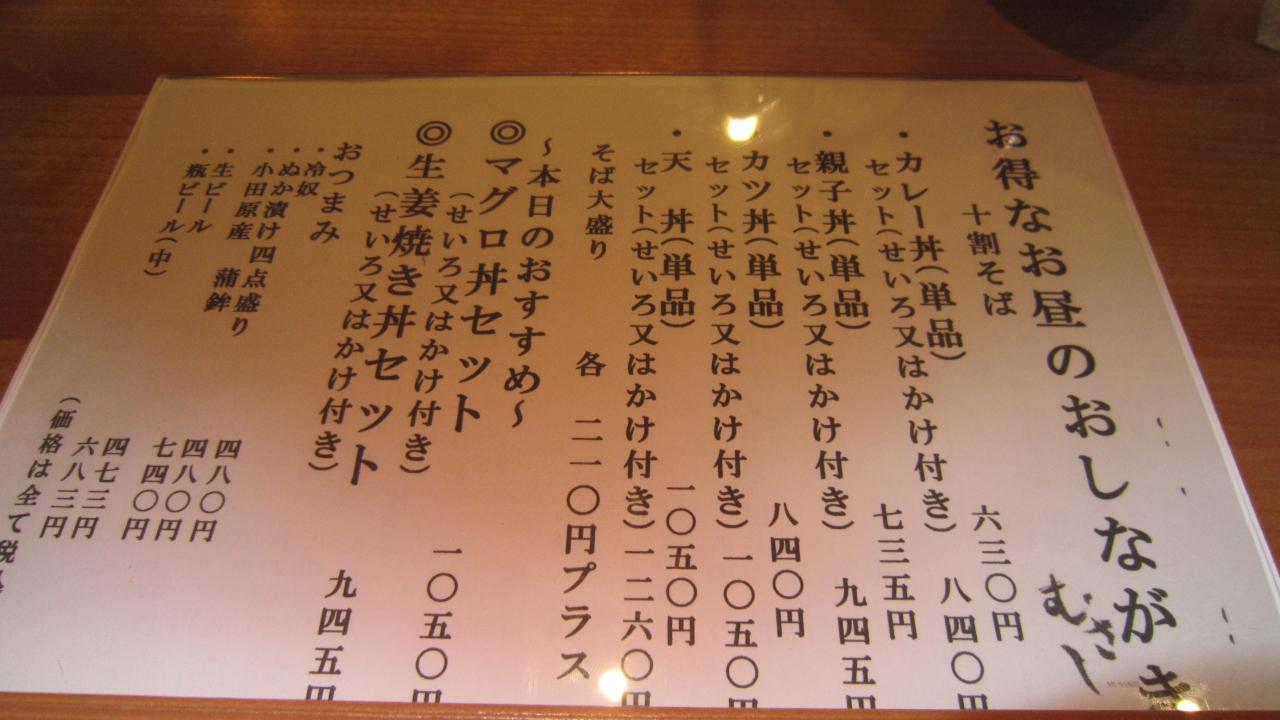 お得なお昼のおしながき
むさし
十割そば
・カレー丼(単品) 六三〇円
セット(せいろ又はかけ付き) 八四〇円
・親子丼(単品) 七三五円
セット(せいろ又はかけ付き) 九四五円
・カツ丼(単品) 八四〇円
セット(せいろ又はかけ付き)一〇五〇円
・天 丼(単品) 一〇五〇円
セット(せいろ又はかけ付き)一二六〇円
そば大盛り 各 二一〇円プラス
～本日のおすすめ～
◎マグロ丼セット
(せいろ又はかけ付き) 一〇五〇円
◎生姜焼き丼セット
(せいろ又はかけ付き) 九四五円
おつまみ
・冷奴 四八〇円
・ぬか漬け四点盛り 四八〇円
・小田原産 蒲鉾 七四〇円
・生ビール 四七三円
・瓶ビール(中) 六八三円
(価格は全て税